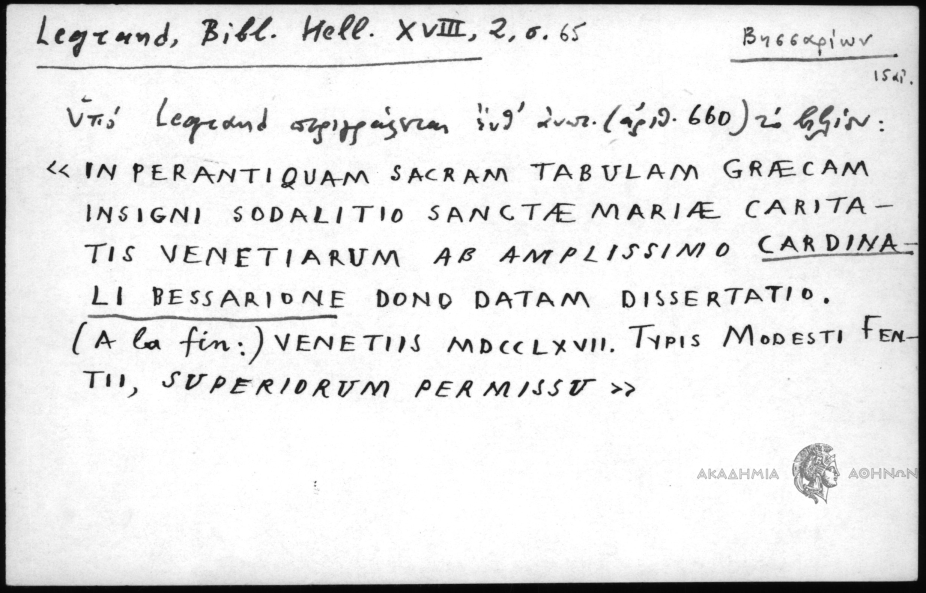 Legrand, Bibl. Hell. XVIII, 2, σ. 65
Βησσαρίων
15 αἰ.
ὑπό Legrand περιγράφεται ἐνθ' ἀνωτ. (ἀριθ. 660) τό βιβλίον:
« IN PERANTIQUAM SACRAM TABULAM GRÆCAM
INSIGNI SODALITIO SANCTÆ MARIÆ CARITA–
TIS VENETIARUM AB AMPLISSIMO CARDINA–
LI BESSARIONE DONO DATAM DISSERTATIO.
(A la fin:) VENETIIS MDCCLXVII. TYPIS MODESTI FEN–
TII, SUPERIORUM PERMISSU »
ΑΚΑΔΗΜΙΑ ΑΘΗΝΩΝ